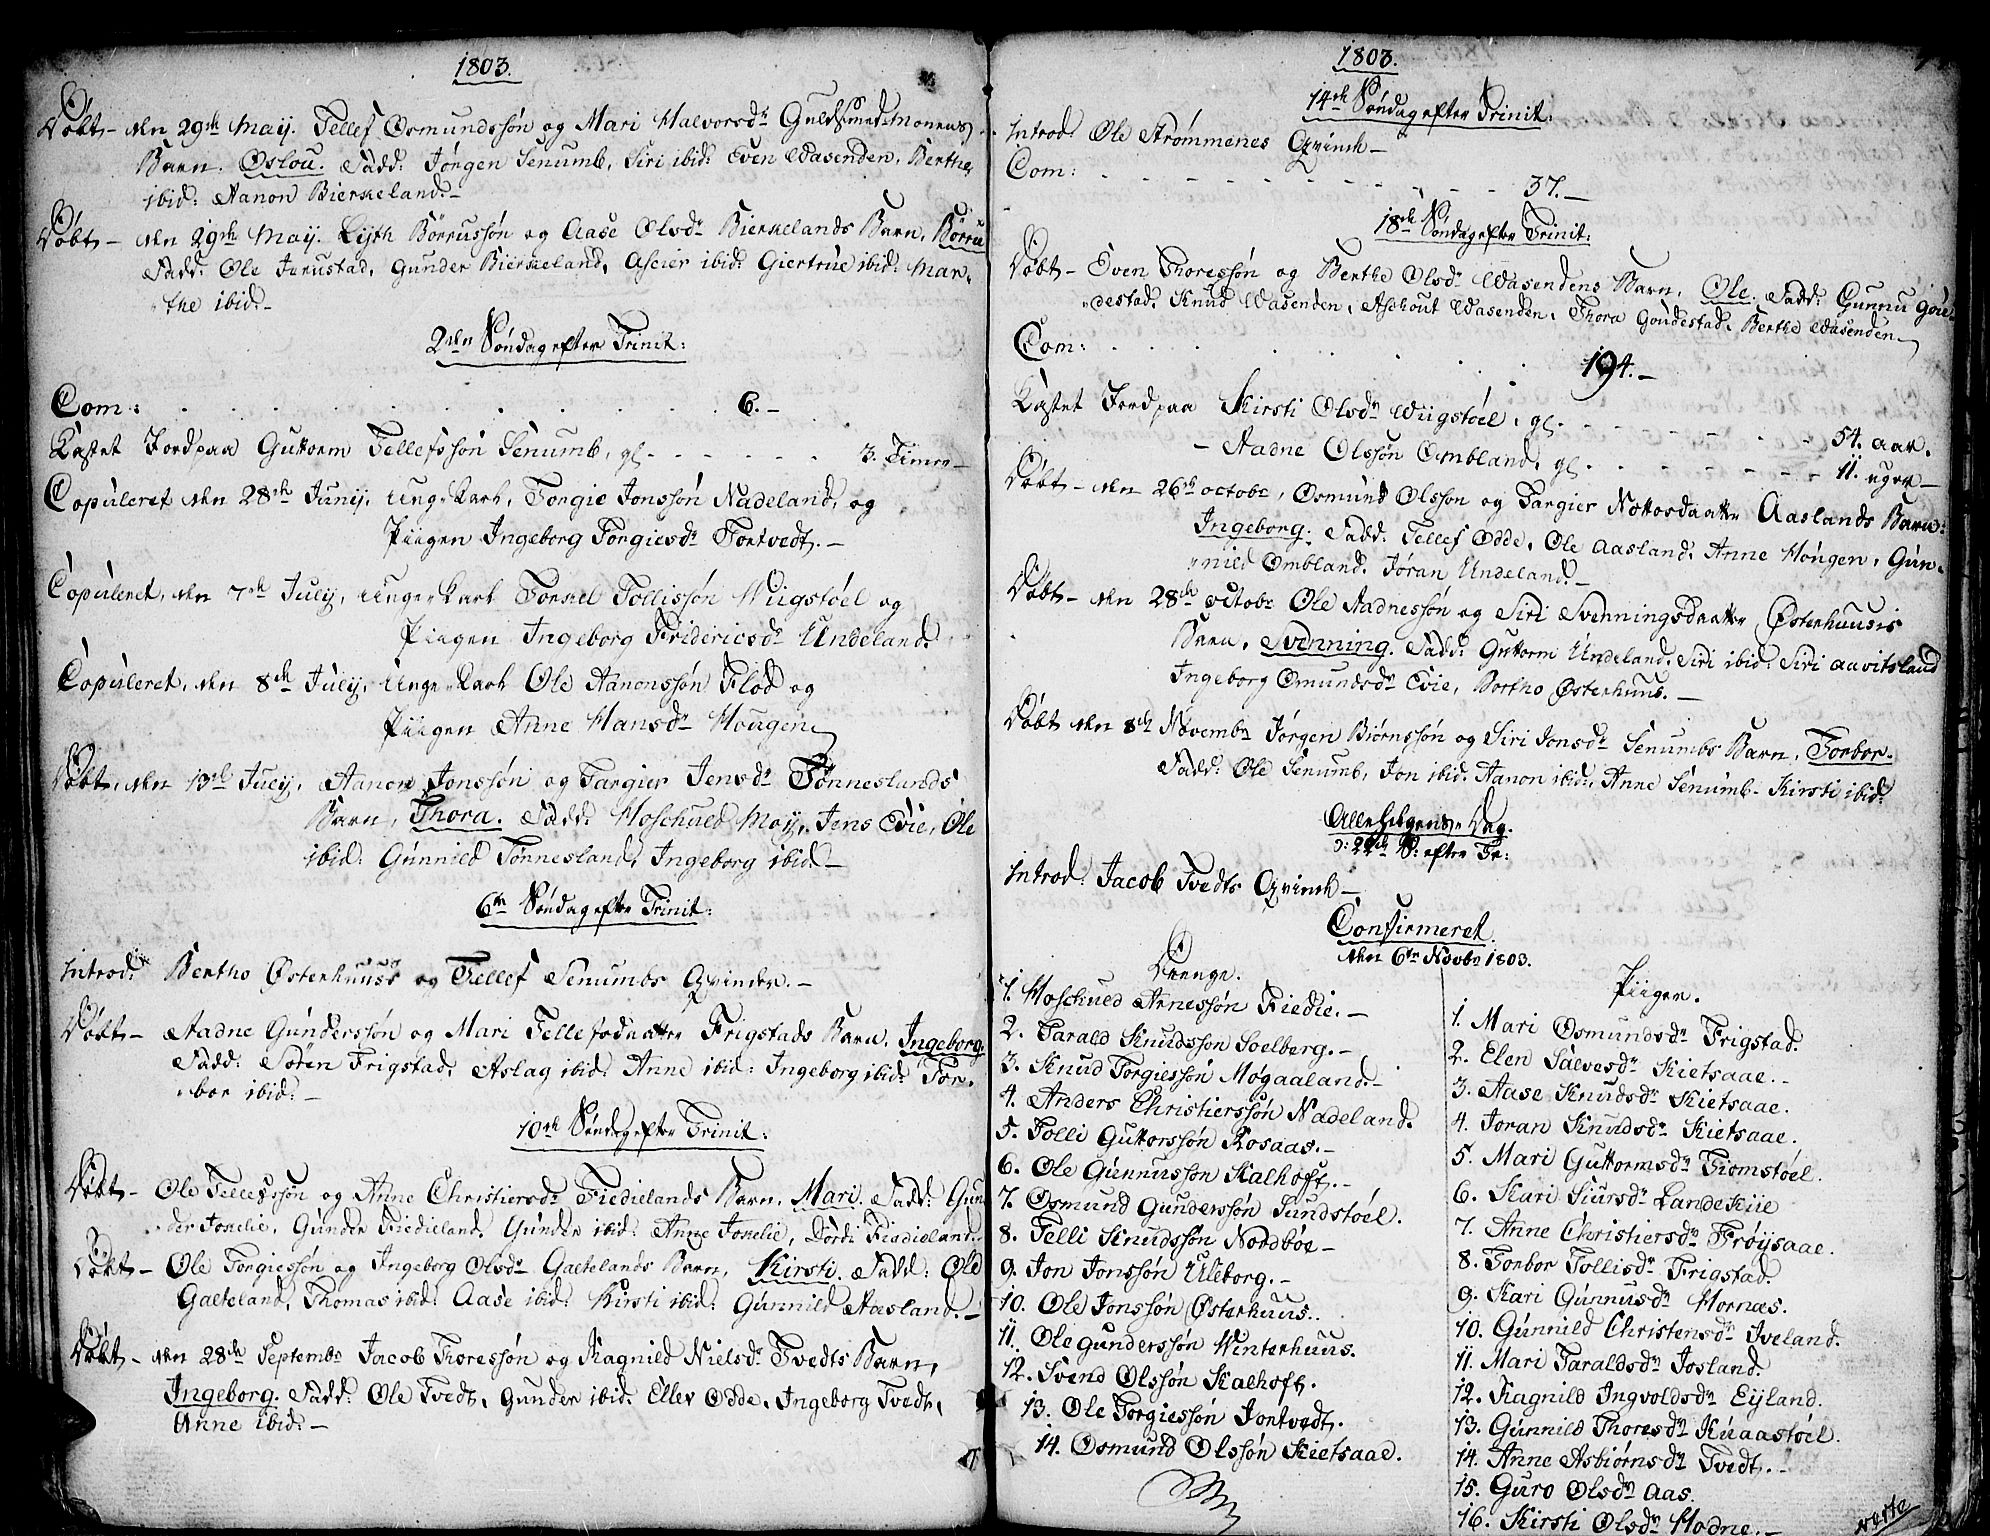 1803.
Døbt – den 29de Maij. Tellef Osmundssøn og Mari Halvorsdr Guldsmed-Monens
Barn. Oslou. Fadd: Jørgen Senumb, Siri ibid: Even Wasenden, Berthe
ibid: Aanon Bierkeland. –
Døbt – den 29de Maij. Lijth Børrussøn og Aase Olsdr Bierkelands Barn, Børru
Fadd: Ole Jerustad, Gunder Bierkeland, Aseier ibid: Giertrue ibid: Mar-
the ibid. –
2den Søndag efter Trinit:
Com: . . . . . . . . . 6. –
Kastet Jord paa Guttorm Tellefssøn Senumb, gl. - - - - - 3. Timer –
Copuleret den 28de Junij, Unge Karl, Torgie Jonssøn Nadeland, og
Piigen Ingeborg Torgiesdr Tortvedt. –
Copuleret, den 7de Julij, Unge Karl Torkel Tollissøn Wiigstøel og
Piigen Ingeborg Fridericsdr Undeland.
Copuleret, den 8de Julij, Unge Karl Ole Aanonssøn Flod og
Piigen Anne Hansdr Hougen
Døbt, den 13de Julij, Aanon Jonssøn og Targier Jensdr Tønneslands
Barn, Thora. Fadd: Hoschued Moij, Jens Evie, Ole
ibid: Gunnild Tønnesland, Ingeborg ibid. –
6te Søndag efter Trinit:
Introd: Bertho Østerhuus og Tellef Senumbs Qvinder. –
Døbt – Aadne Gunderssøn og Mari Tellefsdaatter Frigstads Barn, Ingeborg.
Fadd: Søren Frigstad, Aslag ibid: Anne ibid: Ingeborg ibid: Tor-
bor ibid: –
10de Søndag efter Trinit:
Døbt – Ole Tellefssøn og Anne Christiersdr Fiedielands Barn, Mari. Fadd: Gun
der Jonelie, Gunder Fiedieland. Gunder ibid: Anne Jonelie, Dørdi Fiedieland.
Døbt – Ole Torgiessøn og Ingeborg Olsdr Gaetelands Barn, Kirsti. Fadd: Ole
Gaeteland, Thomas ibid: Aase ibid: Kirsti ibid: Gunnild Aasland. –
Døbt – den 28de Septembr Jacob Thoressøn og Ragnild Nielsdr Tvedts Barn,
Ingeborg. Fadd: Ole Tvedt, Gunder ibid: Ellev Odde, Ingeborg Tvedt,
Anne ibid: –
1803.
14de Søndag efter Trinit:
Introd: Ole Strømmenes Qvinde –
Com: - - - - - - - - - 37. –
18de Søndag efter Trinit:
Døbt – Even Thoressøn og Berthe Olsdr Wasendens Barn, Ole. Fadd: Gunnu Gou-
destad. Knud Wasenden, Aschout Wasenden, Thora Goudestad, Berthe Wasenden
Com: . . . . . . . . . 194. –
Kastet Jord paa Kirsti Olsdr Wiigstøel, gl. - - - - - - 54. aar.
– Aadne Olssøn Ombland, gl. - - - - - - 11. uger –
Døbt – den 26de octobr, Osmund Olssøn og Targier Nottosdaatter Aaslands Barn:
Ingeborg. Fadd: Tellef Odde, Ole Aasland, Anne Hougen, Gun-
nild Ombland. Jøran Undeland. –
Døbt – den 28de octobr Ole Aadnessøn og Siri Svenningsdaatter Østerhuusis
Barn, Svenning. Fadd: Guttorm Undeland, Siri ibid: Siri Aavitsland
Ingeborg Omundsdr Evie, Bertho Østerhuus. –
Døbt den 8de Novembr Jørgen Biørnssøn og Siri Jonsdr Senumbs Barn, Torbor.
Fadd: Ole Senumb, Jon ibid. Aanon ibid: Anne Senumb – Kirsti ibid:
Allehelgens-Dag.
ɔ: 22de S: efter Tr:
Introd: Jacob Tvedts Qvinde –
Confirmeret.
den 6te Novbr 1803.
Drenge.
1. Hoschued Arnessøn Fiedie. –
2. Tarald Knudssøn Soelberg. –
3. Knud Torgiessøn Møgaaland. –
4. Anders Christierssøn Nadeland.
5. Tolli Guttorssøn Rosaas. –
6. Ole Gunnussøn Kalhoft. –
7. Osmund Gunderssøn Sundstøel.
8. Telli Knudssøn Nordboe –
9. Jon Jonssøn Uleborg. –
10. Ole Jonssøn Østerhuus.
11. Ole Gunderssøn Winterhuus.
12. Svend Olssøn Kalhoft.
13. Ole Torgiessøn Tortvedt.
14. Osmund Olssøn Kietsaae.
Piiger.
1. Mari Osmundsdr Frigstad.
2. Elen Salvesdr Kietsaae. –
3. Aase Knudsdr Kietsaae.
4. Joran Knudsdr Kietsaae.
5. Mari Guttormsdr Tiomstøel.
6. Kari Siursdr Landeskiie
7. Anne Christiersdr Frøysaae.
8. Torbor Tollisdr Frigstad.
9. Kari Gunnusdr Hornæs.
10. Gunnild Christensdr Iveland.
11. Mari Taraldsdr Josland.
12. Ragnild Ingvoldsdr Eijland.
13. Gunnild Thoresdr Knaastøel.
14. Anne Asbiørnsdr Tvedt. –
15. Guro Olsdr Aas.
16. Kirsti Olsdr Hodne. –
verte